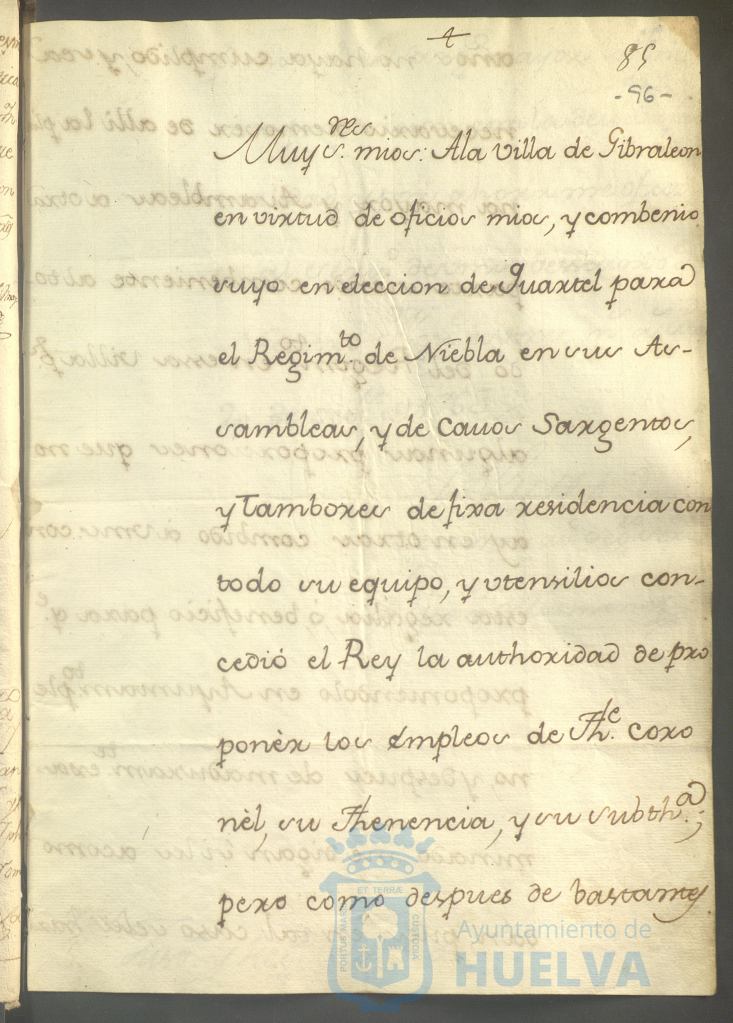 4
85
-96-
Muy s.res mios: Ala villa de Gibraleon
en virtud de oficios mios, y combenio
suyo en eleccion de Quartel para
el Regim.to de Niebla en sus As-
sambleas, y de Cauos Sargentos,
y Tambores de fixa residencia con
todo su equipo, y vtensilios con-
cedió el Rey la authoridad de pro
ponèr los empleos de Th.e Coro
nèl, su Thenencia, y su subth.a;
pero como despues de bastantes
PORTUS MARIS ET TERRÆ CUSTODIA
Ayuntamiento de
HUELVA